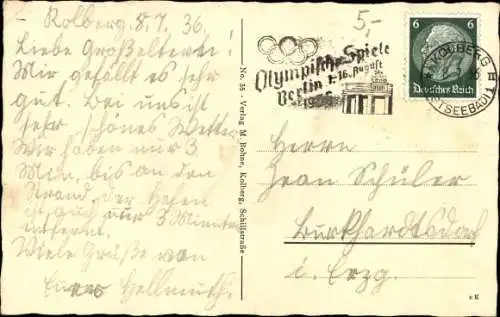 Kolberg, 8.7.36.
Liebe Großeltern!
Mir gefällt es sehr
gut. Bei uns ist
sehr schönes Wetter.
Wir haben nur 3
Min. bis an den
Strand, der Hafen
ist auch nur 3 Minuten
entfernt.
Viele Grüße von
Euer Hellmuth.
No. 35 - Verlag M. Bohne, Kolberg, Schillstraße
5,-
Olympische Spiele
Berlin 1.-16. August
1936
KOLBERG
OSTSEEBAD
6 6
Deutsches Reich
Herrn
Jean Schüler
Burkhardtsdorf
i. Erzg.